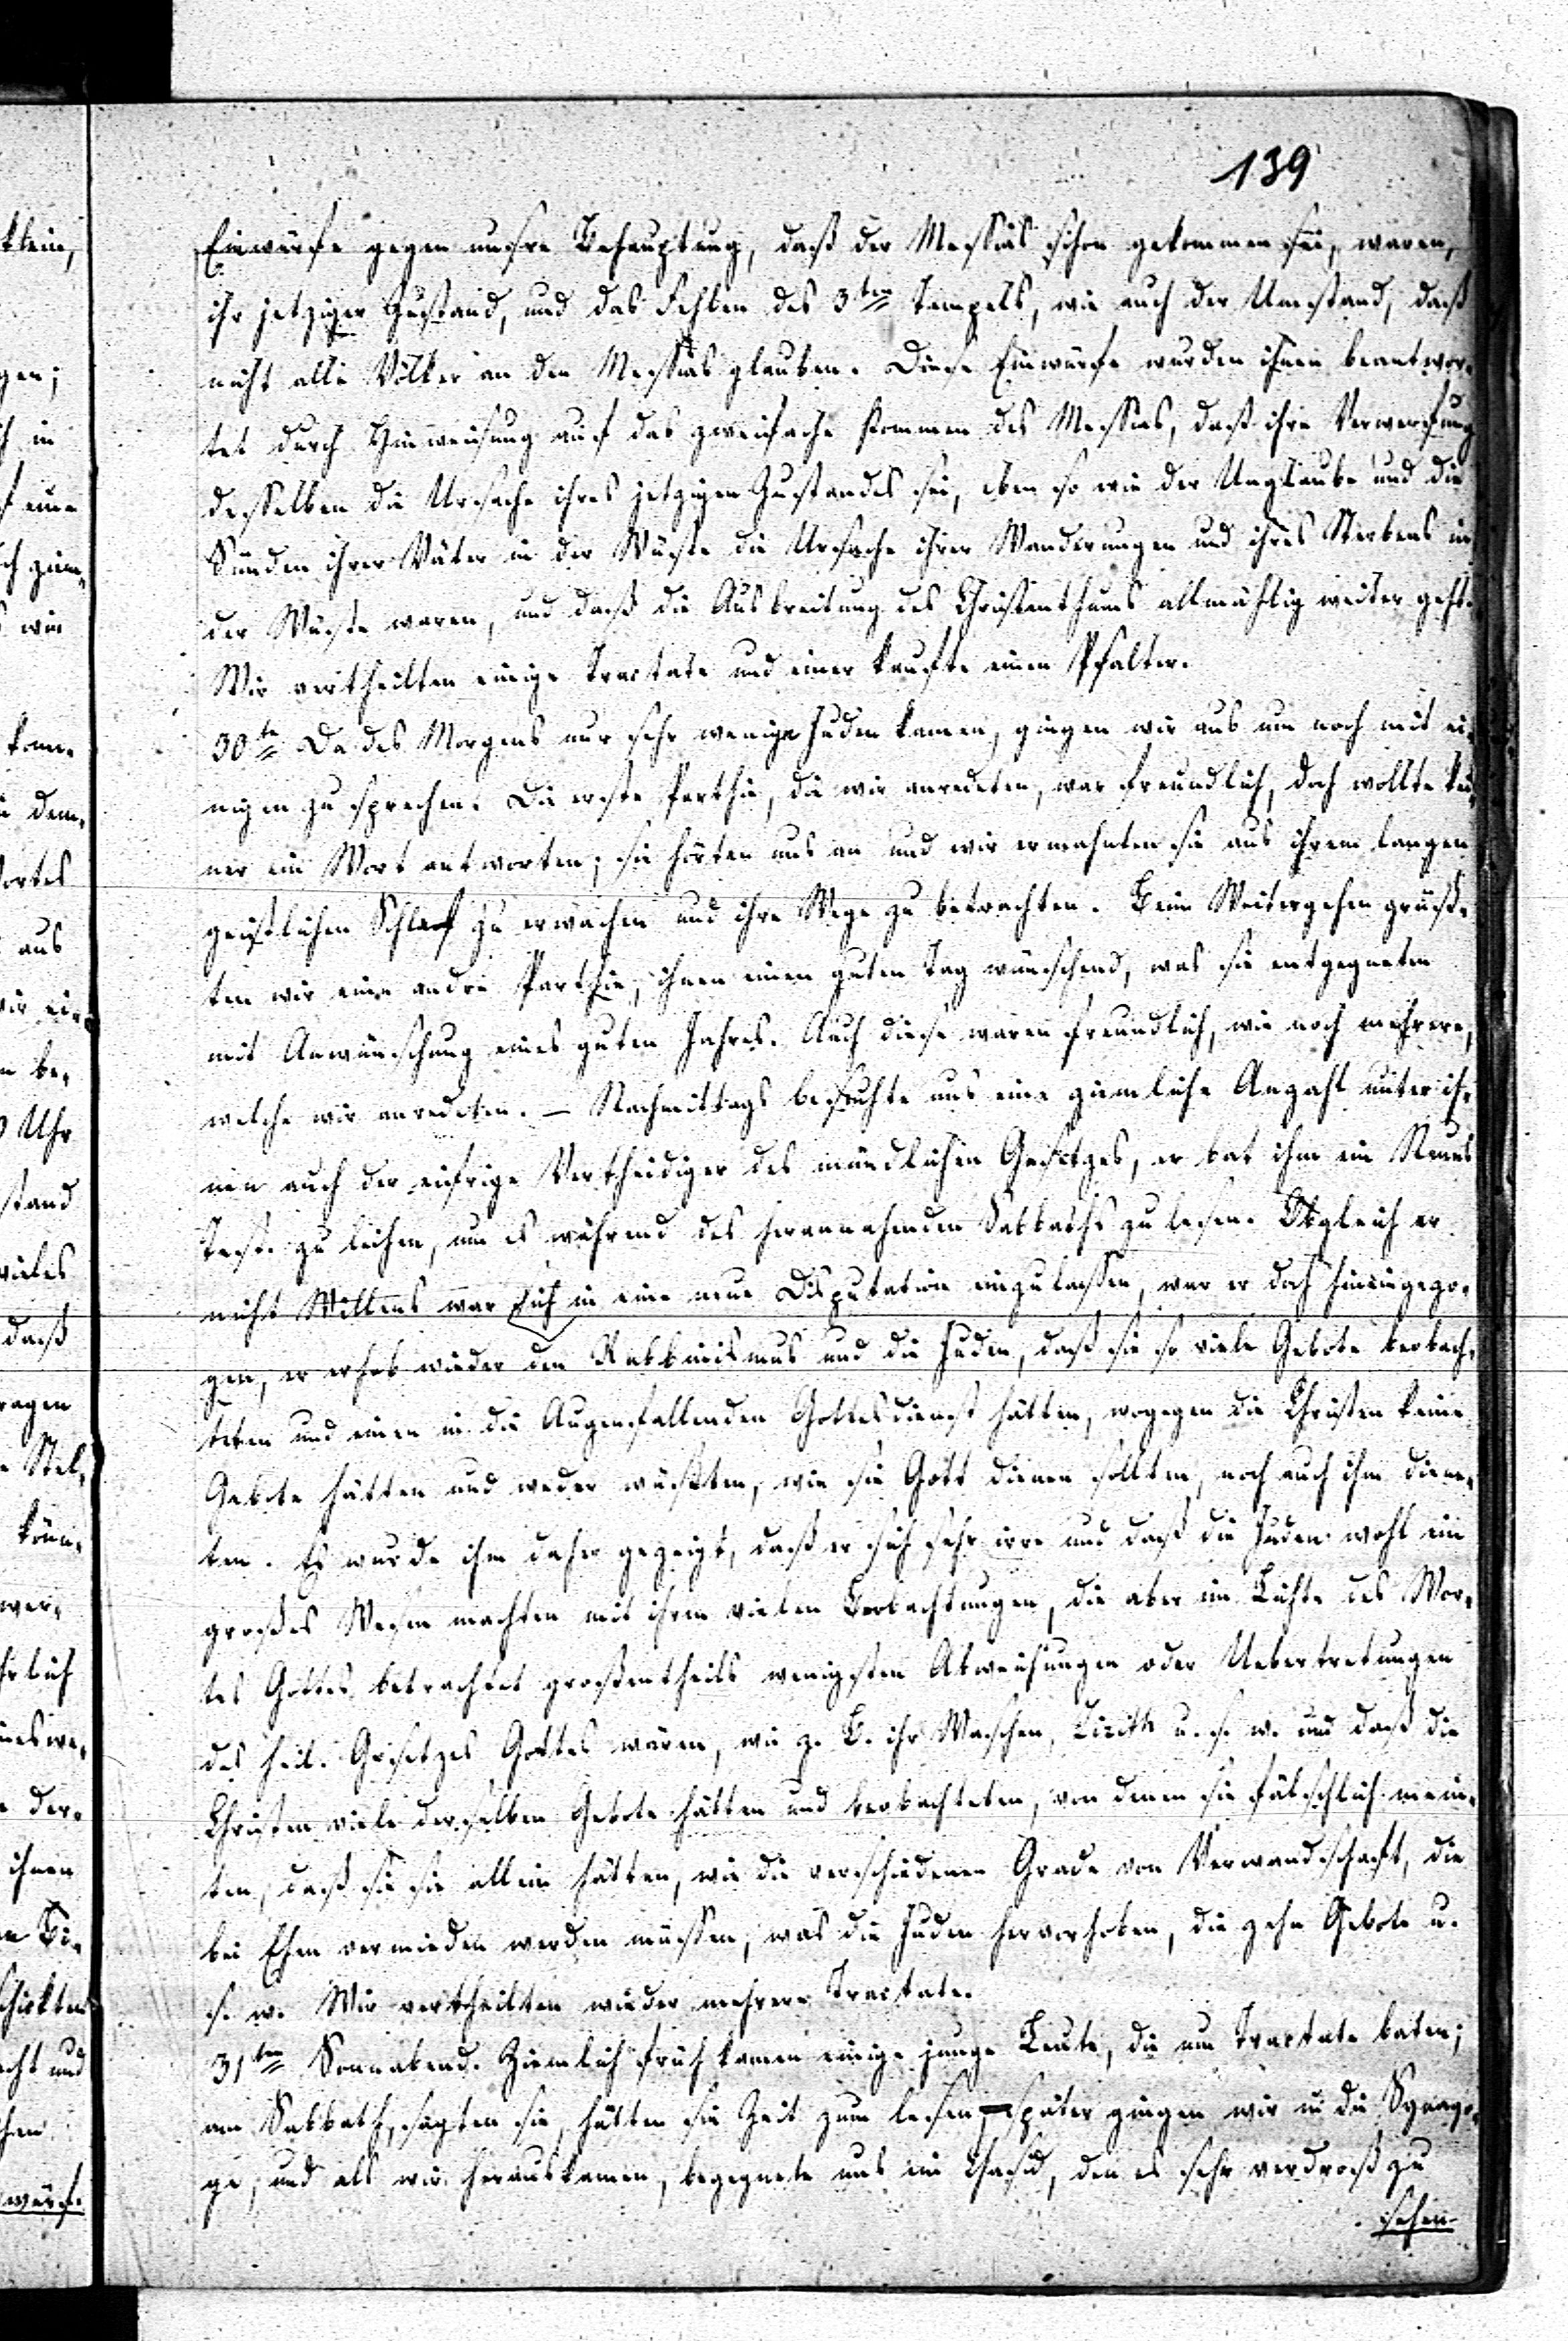 139
Einwürfe gegen unsre Behauptung, daß der Messias schon gekommen sei, waren,
ihr jetziger Zustand, und das Fehlen des 3ten Tempels, wie auch der Umstand, daß
nicht alle Völker an den Messias glauben. Diese Einwürfe wurden ihnen beantwor-
tet durch Hinweisung auf das zweifache Kommen des Messias, daß ihre Verwerfung
desselben die Ursache ihres jetzigen Zustandes sei, eben so wie der Unglaube und die
Sünden ihrer Väter in der Wüste die Ursache ihrer Wanderungen und ihres Sterbens in
der Wüste waren, und daß die Ausbreitung des Christenthums allmählig weiter geht.
Wir vertheilten einige Tractate und einer kaufte einen Psalter.
30te Da des Morgens nur sehr wenige Juden kamen, gingen wir aus um noch mit ei-
nigen zu sprechen. Die erste Parthie, die wir anredeten, war freundlich, doch wollte kei-
ner ein Wort antworten; sie hörten uns an und wir ermahnten sie aus ihrem langen
geistlichen Schlaf zu erwachen und ihre Wege zu betrachten. Beim Weitergehen grüß-
ten wir eine andre Parthie, ihnen einen guten Tag wünschend, was sie entgegneten
mit Anwünschung eines guten Jahres. Auch diese waren freundlich, wie noch mehrere,
welche wir anredeten. – Nachmittags besuchte uns eine ziemliche Anzahl unter ih-
nen auch der eifrige Vertheidiger des mündlichen Gesetzes, er bat ihm ein Neues
Test. zu leihen, um es während des herannahenden Sabbaths zu lesen. Obgleich er
nicht Willens war sich in eine neue Disputation einzulassen, war er doch hineingezo-
gen, er erhob wieder den Rabbinismus und die Juden, daß sie so viele Gebote beobach-
teten und einen in die Augenfallenden Gottesdienst hätten, wogegen die Christen keine
Gebote hätten und weder wüßten, wie sie Gott dienen sollten, noch auch ihm diene-
ten. Es wurde ihm daher gezeigt, daß er sich sehr irre und daß die Juden wohl ein
großes Wesen machten mit ihren vielen Beobachtungen, die aber im Lichte des Wor-
tes Gottes betrachtet großentheils wenigsten Abweichungen oder Uebertretungen
des heil. Gesetzes Gottes wären, wie z. B. ihr Waschen, Zizith u. s. w. und daß die
Christen viele derselben Gebote hätten und beobachteten, von denen sie fälschlich mein-
ten, daß sie sie allein hätten, wie die verschiedenen Grade von Verwandschaft, die
bei Ehen vermieden werden müssen, was die Juden hervorhoben, die zehn Gebote u.
s. w. Wir vertheilten wieder mehrere Tractate.
31ten Sonnabend. Ziemlich früh kamen einige junge Leute, die um Tractate baten;
am Sabbath, sagten sie, hätten sie Zeit zum lesen, – später gingen wir in die Synago-
ge, und als wir herauskamen, begegnete uns ein Chasid, den es sehr verdroß zu
sehen